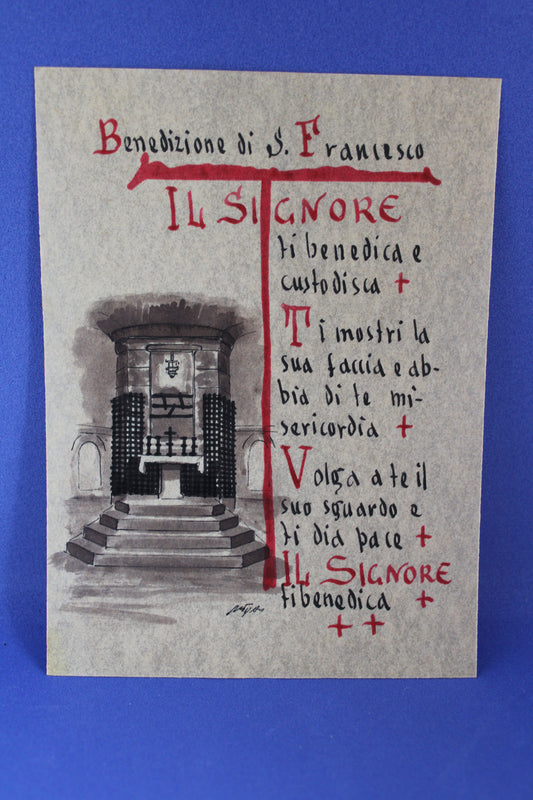 Benedizione di S. Francesco
IL SIGNORE
ti benedica e
custodisca +
Ti mostri la
sua faccia e ab-
bia di te mi-
sericordia +
Volga a te il
suo sguardo e
ti dia pace +
IL SIGNORE
ti benedica +
+ +